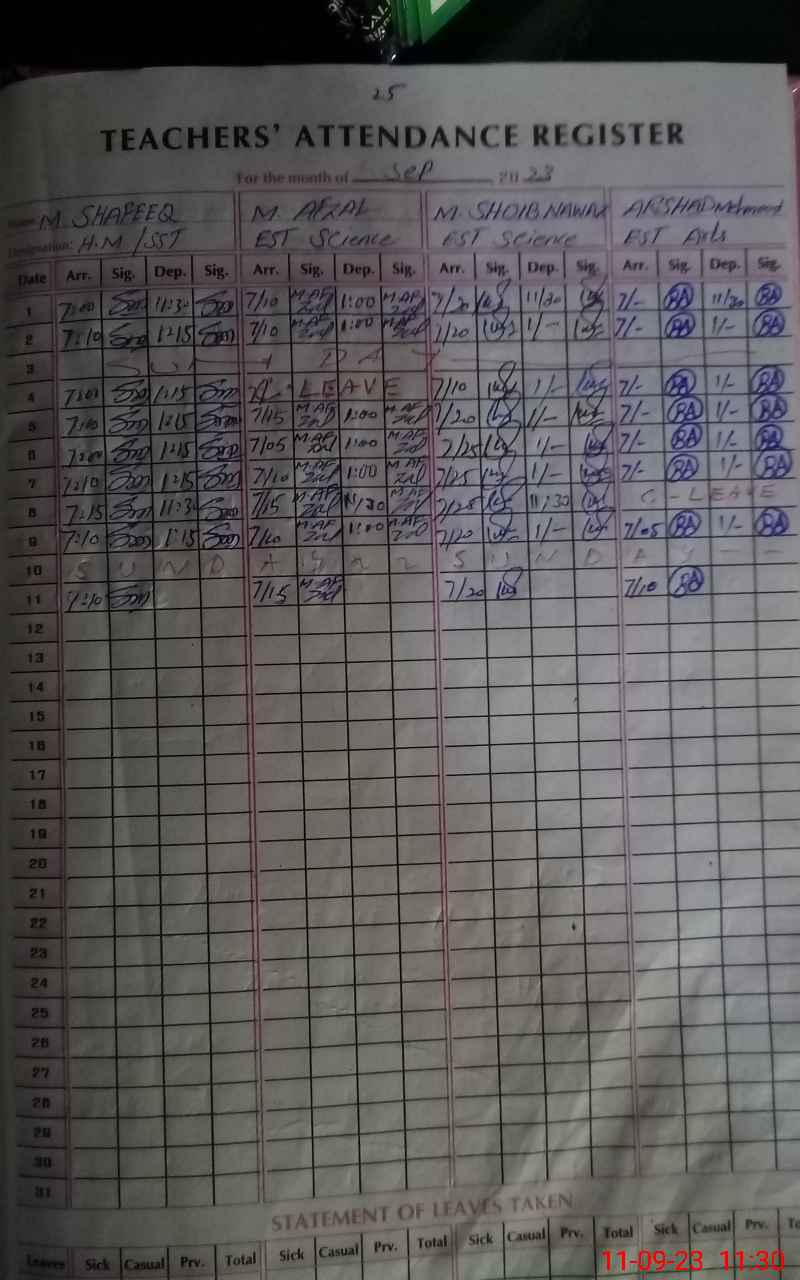 25
TEACHERS' ATTENDANCE REGISTER
For the month of Sep 2023
Name: M. SHAFEEQ M. AFZAL M. SHOIB NAWAZ ARSHAD Mehmood
Designation: H.M / SST EST Science EST Science EST Arts
Date Arr. Sig. Dep. Sig. Arr. Sig. Dep. Sig. Arr. Sig. Dep. Sig. Arr. Sig. Dep. Sig.
1 7:00 11:30 7/10 1:00 7/20 11/30 7/- 11/30
2 7:10 1:15 7/10 1:00 7/20 1/- 7/- 1/-
3 S U N D A Y
4 7:00 1:15 LEAVE 7/10 1/- 7/- 1/-
5 7:00 1:15 7/15 1:00 7/20 1/- 7/- 1/-
6 7:00 1:15 7/05 1:00 7/25 1/- 7/- 1/-
7 7:10 1:15 7/10 1:00 7/25 1/- 7/- 1/-
8 7:15 11:3 7/15 11/30 7/25 11/30 C - LEAVE
9 7:10 1:15 7/10 1:00 7/20 1/- 7/05 1/-
10 S U N D A Y S U N D A Y
11 7:10 7/15 7/20 7/10
12
13
14
15
16
17
18
19
20
21
22
23
24
25
26
27
28
29
30
31
STATEMENT OF LEAVES TAKEN
Leaves Sick Casual Prv. Total Sick Casual Prv. Total Sick Casual Prv. Total Sick Casual Prv. To
11-09-23 11:30